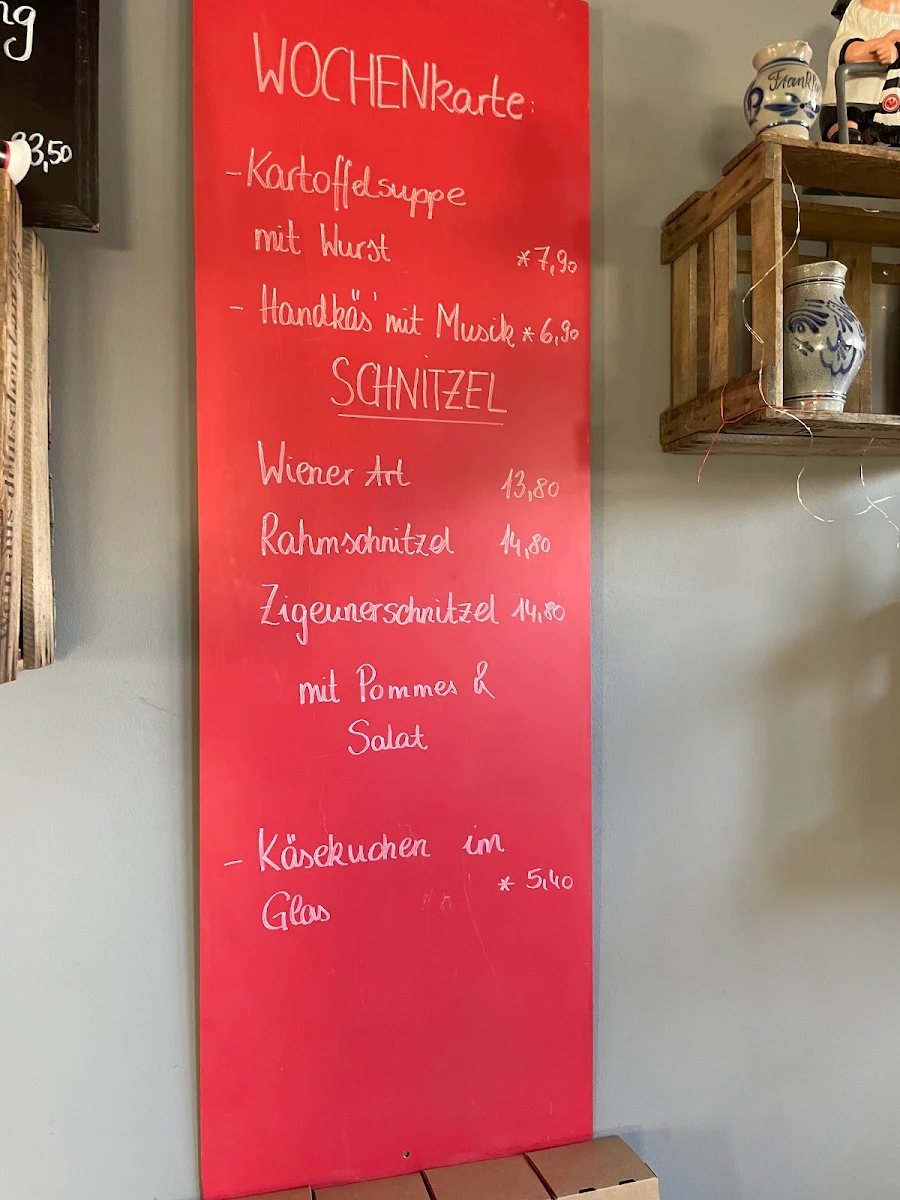 ng
33,50
WOCHENkarte:
- Kartoffelsuppe
mit Wurst *7,90
- Handkäs' mit Musik *6,90
SCHNITZEL
Wiener Art 13,80
Rahmschnitzel 14,80
Zigeunerschnitzel 14,80
mit Pommes &
Salat
- Käsekuchen im
* 5,40
Glas